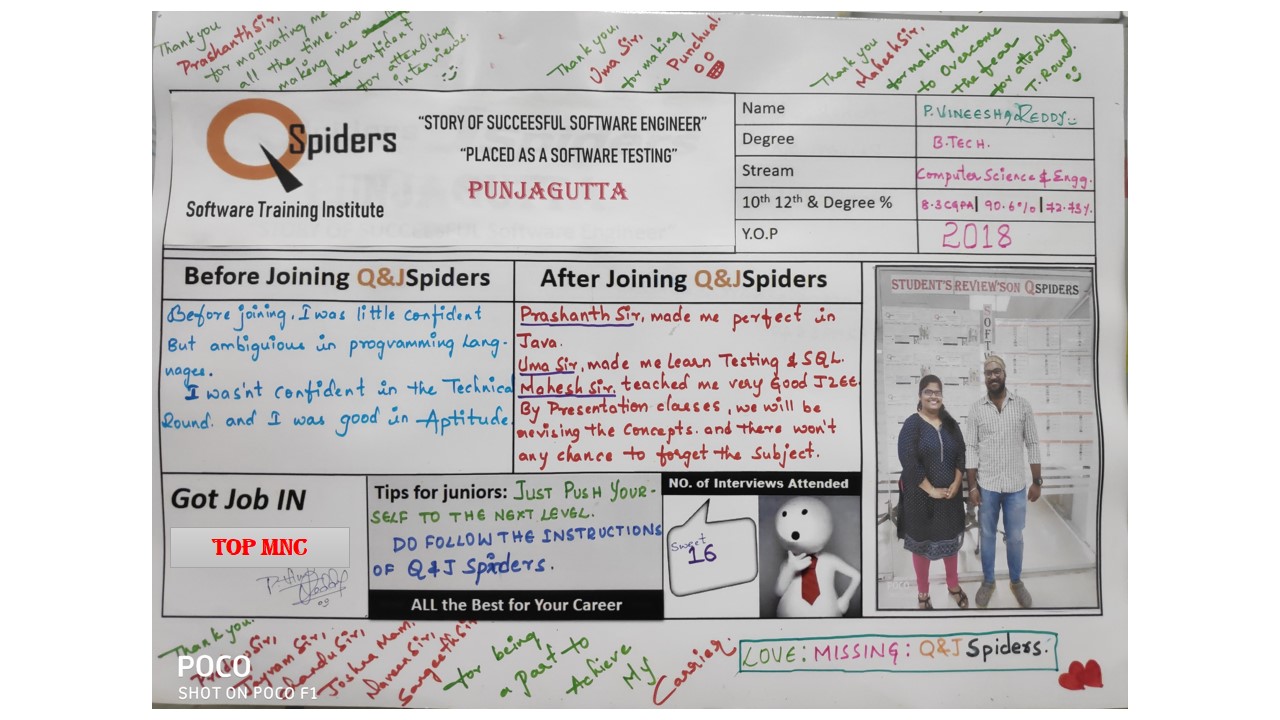 Thank you
Prashanth Sir,
for motivating me
all the time. and
making me confident
for attending
interviews.
Thank you,
Uma Sir,
for making
me Punchual.
Thank you
Mahesh Sir,
for making me
to Overcome
the fear
for attending
T. Round.
QSpiders
Software Training Institute
“STORY OF SUCCEESFUL SOFTWARE ENGINEER”
“PLACED AS A SOFTWARE TESTING”
PUNJAGUTTA
Name P. VINEESHA REDDY
Degree B.TECH.
Stream Computer Science & Engg.
10th 12th & Degree % 8.3 CGPA | 90.6% | 72.73%
Y.O.P 2018
Before Joining Q&JSpiders
Before joining, I was little confident
But ambiguious in programming Lang-
uages.
I wasn't confident in the Technical
Round. and I was good in Aptitude.
After Joining Q&JSpiders
Prashanth Sir, made me perfect in
Java.
Uma Sir, made me Learn Testing & SQL.
Mahesh Sir, teached me very Good J2EE.
By Presentation classes, we will be
revising the Concepts. and there won't
any chance to forget the Subject.
STUDENT'S REVIEW'S ON QSPIDERS
SOFTW
POCO
Got Job IN
TOP MNC
Tips for juniors: JUST PUSH YOUR-
SELF TO THE NEXT LEVEL.
DO FOLLOW THE INSTRUCTIONS
OF Q&J Spiders.
ALL the Best for Your Career
NO. of Interviews Attended
Sweet
16
Thank you.
Sir,
Sir,
Chandu Sir,
Joshna Mam,
Naveen Sir,
Sangeeth Sir
for being
a part to
Achieve
My
Carrier.
LOVE: MISSING: Q&J Spiders.
POCO
SHOT ON POCO F1